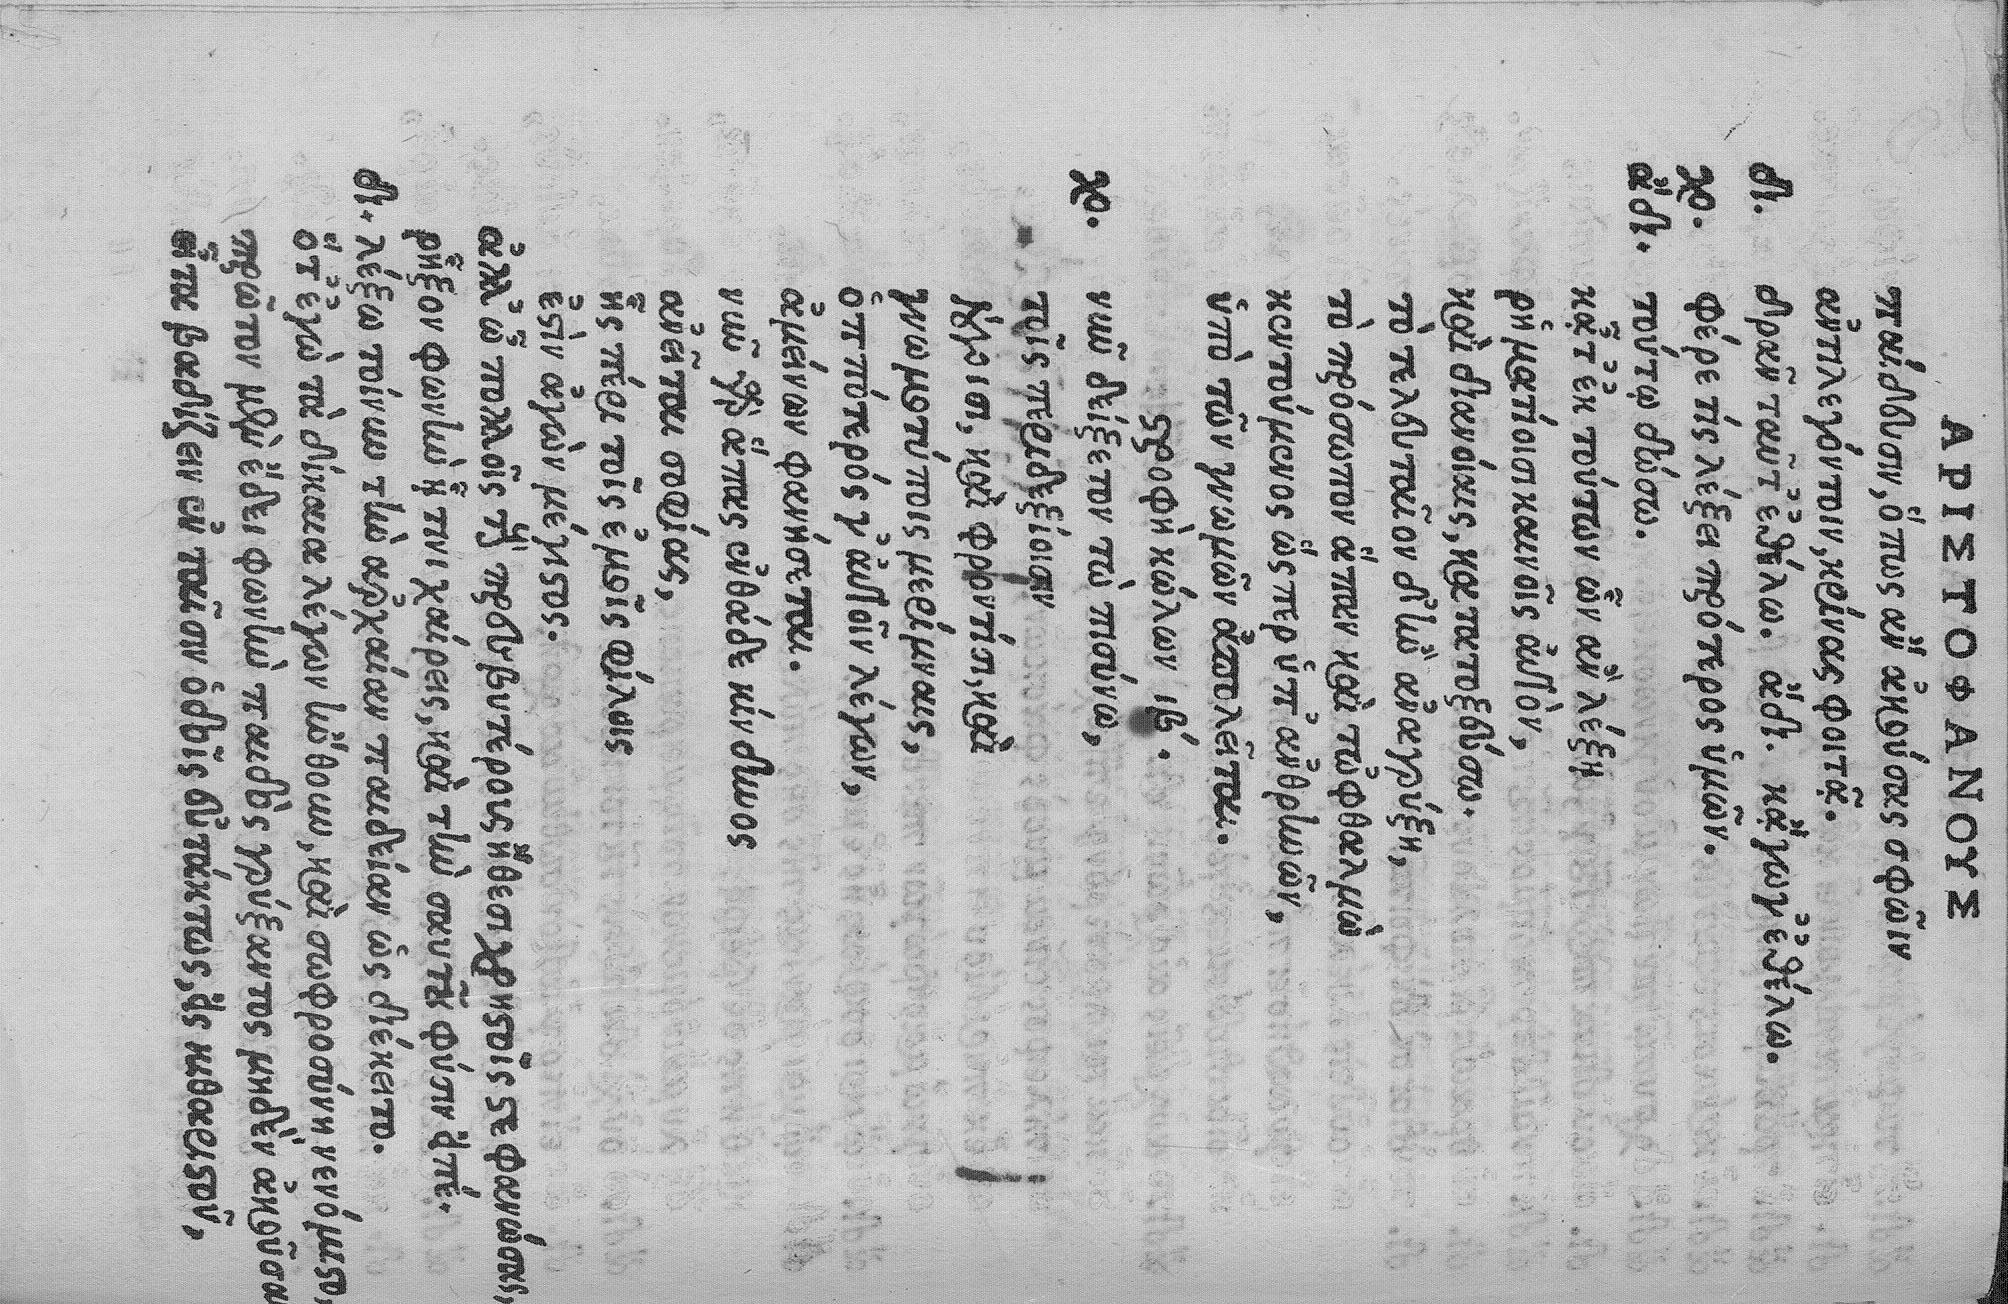 ΑΡΙΣΤΟΦΑΝΟΥΣ
παίδευσιν, ὅπως ἂν ἀκούσας σφῶιν
ἀντιλεγόντοιν, κρίνας φοιτᾷ.
δι. δρᾶν ταῦτ' ἐθέλω. ἄδι. κἄγωγ' ἐθέλω.
χο. φέρε τίς λέξει πρότερος ὑμῶν.
ἄδι. τούτῳ δώσω.
κᾆτ' ἐκ τούτων ὧν ἂν λέξῃ
ῥηματίοισι καινοῖς αὐτὸν,
καὶ διανοίαις, κατατοξεύσω.
τὸ τελευταῖον δ' ἢν ἀναγρύξῃ,
τὸ πρόσωπον ἅπαν καὶ τὼφθαλμὼ
κεντούμενος ὥσπερ ὑπ' ἀνθρηνῶν,
ὑπὸ τῶν γνωμῶν ἀπολεῖται.
στροφὴ κώλων ιβ.
χο. νῦν δείξετον τὼ πισύνω,
τοῖς περιδεξίοισιν
λόγοισι, καὶ φροντίσι, καὶ
γνωμοτύποις μερίμναις,
ὁπότερός γ' αὐτοῖν λέγων,
ἀμείνων φανήσεται.
νῦν γὰρ ἅπας ἐνθάδε κίνδυνος
ἀνεῖται σοφίας,
ἧς πέρι τοῖς ἐμοῖς φίλοις
ἐστὶν ἀγὼν μέγιστος.
ἀλλ' ὦ πολλοῖς τοὺς πρεσβυτέρους ἤθεσι χρηστοῖς στεφανώσας,
ῥῆξον φωνὴν ᾗτινι χαίρεις, καὶ τὴν σαυτοῦ φύσιν εἰπέ.
δι. λέξω τοίνυν τὴν ἀρχαίαν παιδείαν ὡς διέκειτο.
ὅτ' ἐγὼ τὰ δίκαια λέγων ἤνθουν, καὶ σωφροσύνη νενόμιστο,
πρῶτον μὲν ἔδει φωνὴν παιδὸς γρύξαντος μηδὲν ἀκοῦσαι
εἶτα βαδίζειν ἐν ταῖσιν ὁδοῖς εὐτάκτως, εἰς κιθαριστοῦ,